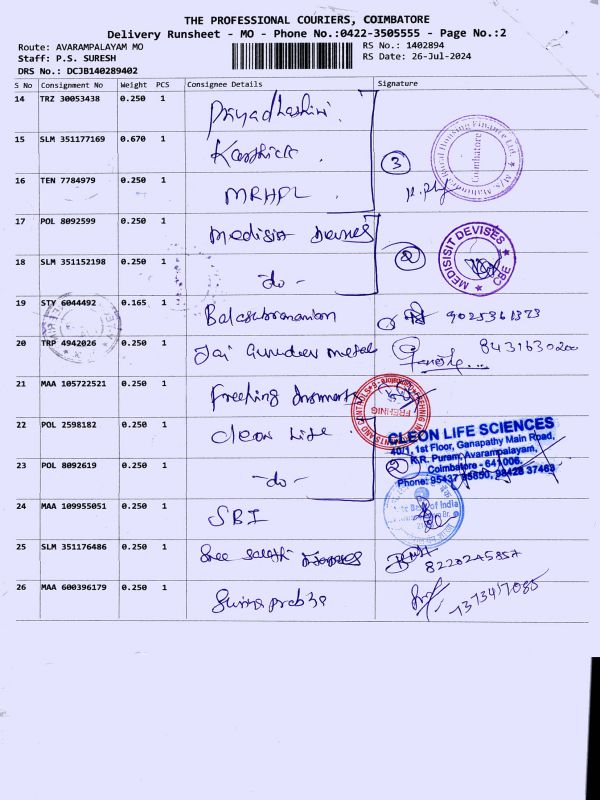 THE PROFESSIONAL COURIERS, COIMBATORE
Delivery Runsheet - MO - Phone No.:0422-3505555 - Page No.:2
Route: AVARAMPALAYAM MO
RS No.: 1402894
Staff: P.S. SURESH
RS Date: 26-Jul-2024
DRS No.: DCJB140289402
S No Consignment No Weight PCS Consignee Details Signature
14 TRZ 30053438 0.250 1
15 SLM 351177169 0.670 1 Karthick
3
16 TEN 7784979 0.250 1 MRHFL
17 POL 8092599 0.250 1 Medisit
MEDISISIT DEVISES ★ CBE ★
2
18 SLM 351152198 0.250 1 -do-
19 STY 6044492 0.165 1 Balasubramaniam 9025361373
20 TRP 4942026 0.250 1 Jai Gurudev metal Ganesh... 8431630200
21 MAA 105722521 0.250 1
22 POL 2598182 0.250 1 Cleon Life
CLEON LIFE SCIENCES
40/1, 1st Floor, Ganapathy Main Road,
K.R. Puram, Avarampalayam,
Coimbatore - 641006.
2
23 POL 8092619 0.250 1 -do-
24 MAA 109955051 0.250 1 SBI
25 SLM 351176486 0.250 1 Sree
26 MAA 600396179 0.250 1